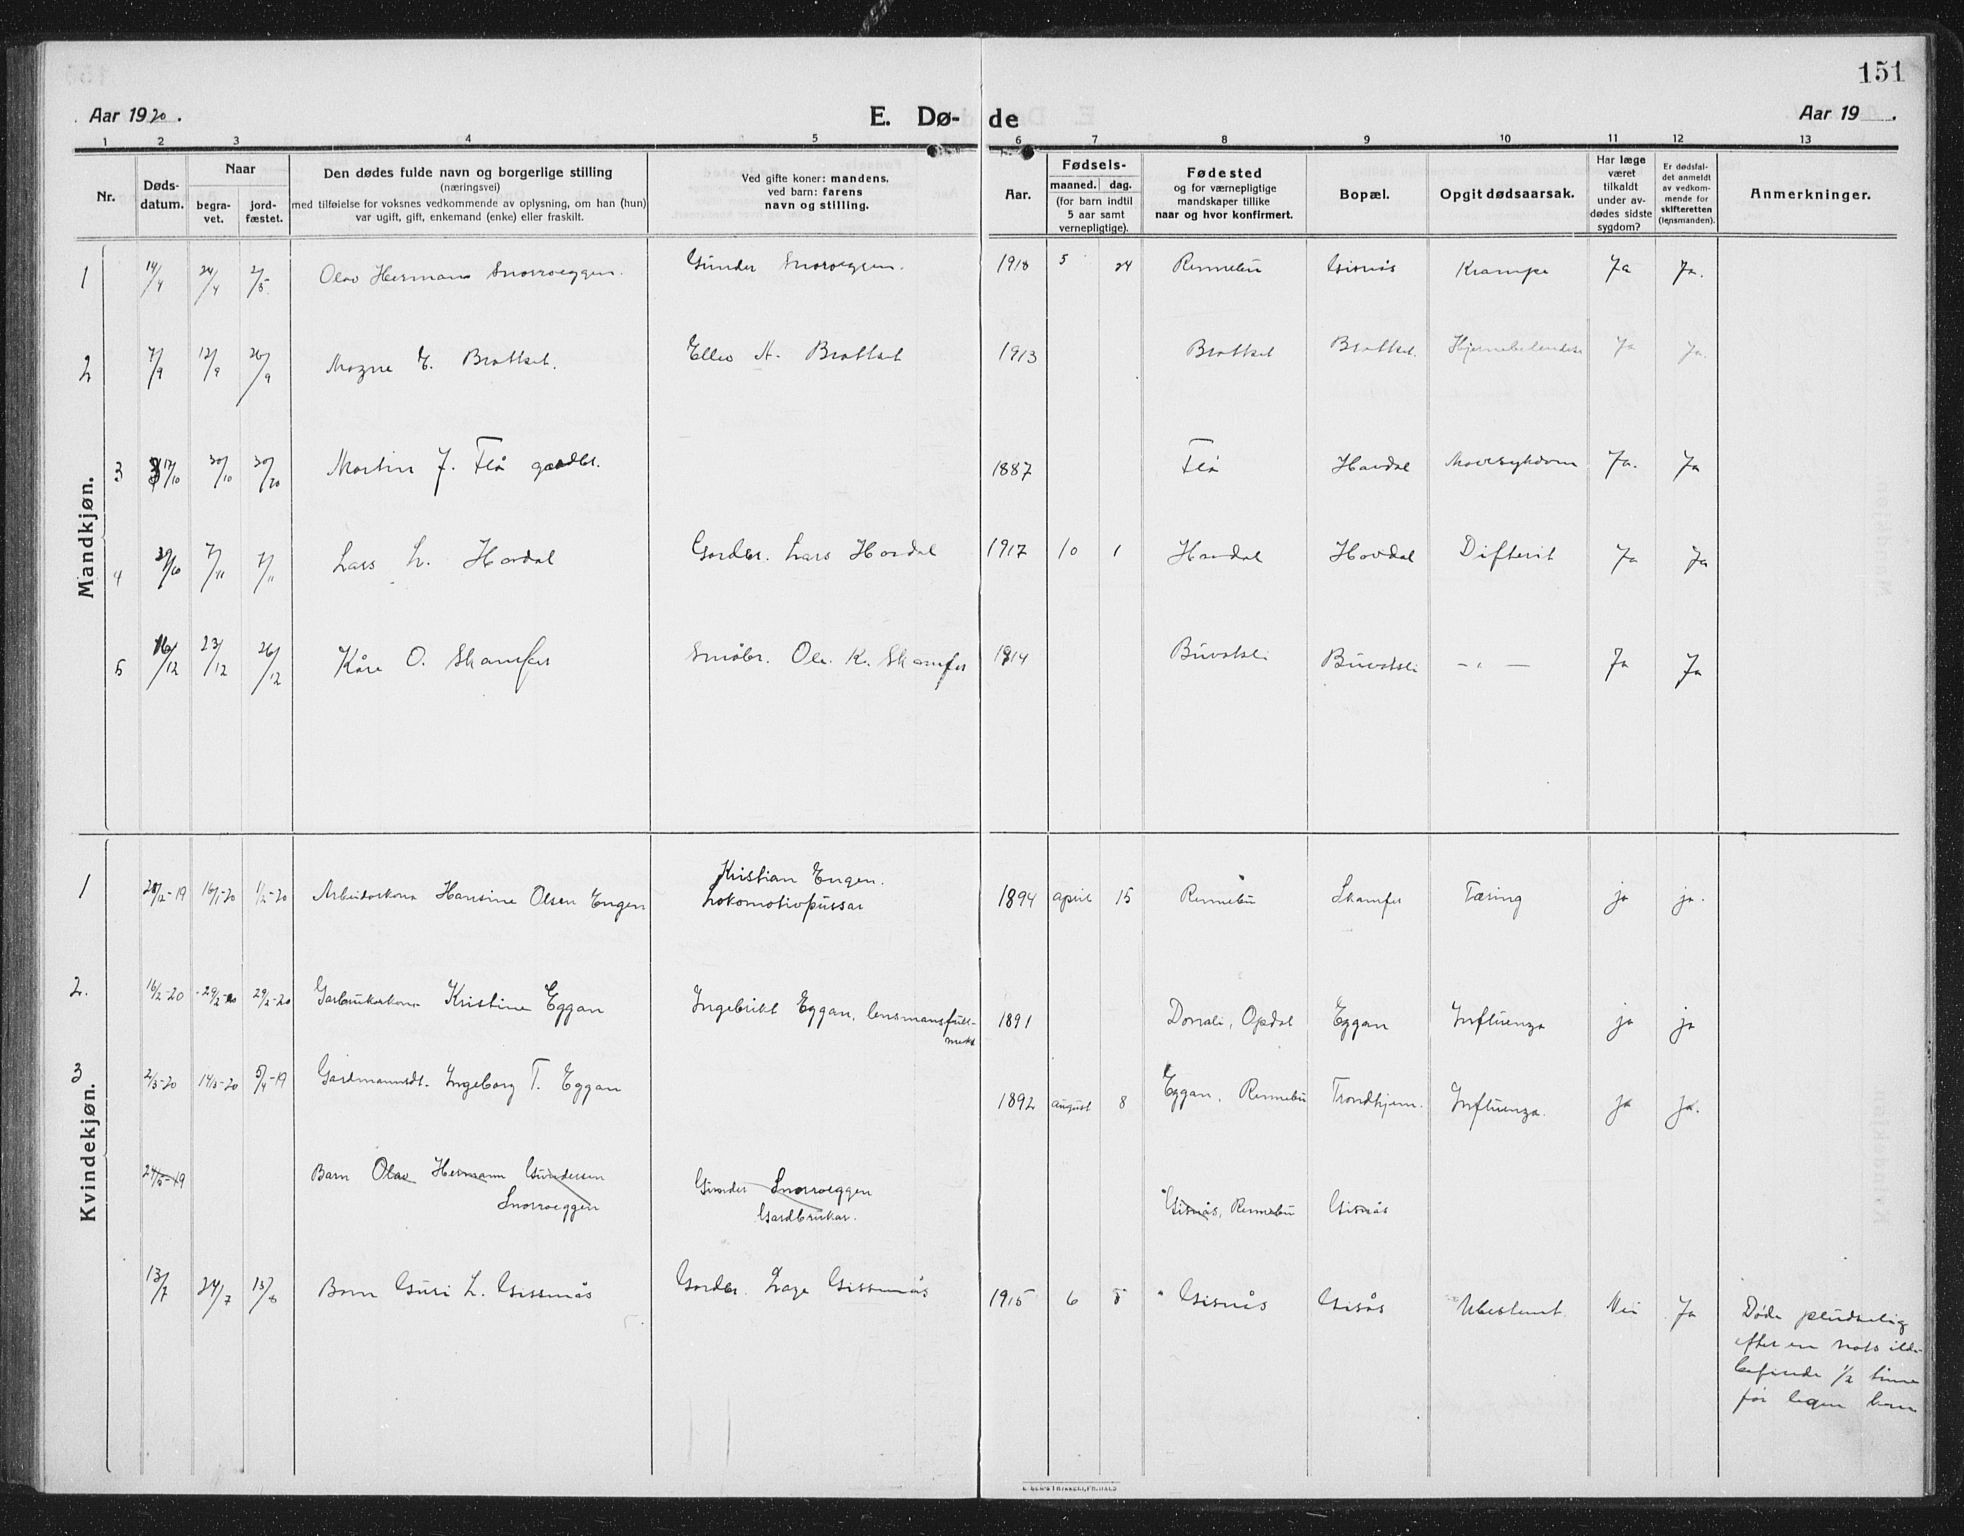 151
Aar 1920.
E. Dø-
de
Aar 19 .
1 2 3 4 5 6 7 8 9 10 11 12 13
Nr.
Døds-
datum.
Naar
begra-
vet.
jord-
fæstet.
Den dødes fulde navn og borgerlige stilling
(næringsvei)
med tilføielse for voksnes vedkommende av oplysning, om han (hun)
var ugift, gift, enkemand (enke) eller fraskilt.
Ved gifte koner: mandens,
ved barn: farens
navn og stilling.
Aar.
Fødsels-
maaned. dag.
(for barn indtil
5 aar samt
vernepligtige).
Fødested
og for værnepligtige
mandskaper tillike
naar og hvor konfirmert.
Bopæl.
Opgit dødsaarsak.
Har læge
været
tilkaldt
under av-
dødes sidste
sygdom?
Er dødsfal-
det anmeldt
av vedkom-
mende for
skifteretten
(lensmanden).
Anmerkninger.
Mandkjøn.
1 14/4 24/4 2/5 Olav Hermann Snorroeggen. Gunder Snoroeggen. 1918 5 24 Rennebu Gisnås Krampe Ja Ja.
2 7/9 12/9 26/9 Magne E. Brattset. Ellev A. Brattset 1913 Brattset Brattset. Ja Ja.
3 17/10 30/10 30/20 Martin J. Flå gardbr. 1887 Flå Havdal Mavesykdom Ja. Ja
4 7/11 7/11 Lars L. Havdal Gardbr. Lars Havdal 1917 10 1 Havdal Hovdal Difterit Ja Ja
5 16/12 23/12 26/12 Kåre O. Skamfer Småbr. Ole K. Skamfer 1914 Buvatsli Buvatsli - " - Ja Ja
Kvindekjøn.
1 16/1-20 1/2-20 Arbeidarkona Hansine Olsen Engen Kristian Engen.
Lokomotivpussar 1894 april 15 Rennebu Skamfer Tæring ja ja.
2. 16/2-20 29/2-20 29/2-20 Garbrukarkona Kristine Eggan Ingebrikt Eggan, lensmansfull-
mekt 1891 Donali, Opdal Eggan Influenza ja ja
3 2/3-20 14/3-20 5/4-19 Gardmannsdt. Ingeborg T. Eggan 1892 august 8 Eggan, Rennebu Trondhjem. Influenza. ja ja.
24/5-19 Barn Olav Hermann Gundersen
Snorroeggen Gunder Snorroeggen
Gardbrukar. Gisnås, Rennebu Gisnås
13/7 24/7 15/8 Barn Guri L. Gissnås Gardbr. Lage Gissnås 1915 6 5 Gisnås Gisås Ubestemt Nei Ja Døde pludselig
efter en nats ilde-
befinde 1/2 time
før legen kom